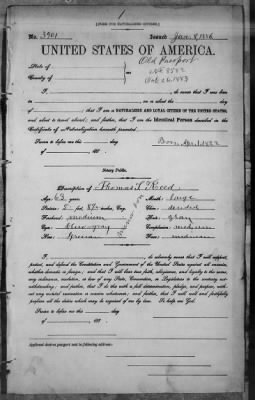 [FORM FOR NATURALIZED CITIZEN.]
No. 3901 Issued Jan. 8, 1886
UNITED STATES OF AMERICA.
State of
County of
Old Passport
Oct. 26, 1883
I, do swear that I was born
in , on or about the day
of ; that I am a NATURALIZED AND LOYAL CITIZEN OF THE UNITED STATES,
and about to travel abroad; and further, that I am the Identical Person described in the
Certificate of Naturalization herewith presented.
Sworn to before me this day
of , 188 .
Born, Apr. 1, 1822
Notary Public.
Description of Thomas T. Reed
Age: 63 years Mouth: large
Stature: 5 feet, 8 inches, Eng. Chin:
Forehead: medium Hair: gray
Eyes: blue-gray Complexion: medium
Nose: Face: medium
I, , do solemnly swear that I will support,
protect, and defend the Constitution and Government of the United States against all enemies,
whether domestic or foreign; and that I will bear true faith, allegiance, and loyalty to the same,
any ordinance, resolution, or law of any State, Convention, or Legislature to the contrary notwithstanding;
and further, that I do this with a full determination, pledge, and purpose, without
any mental reservation or evasion whatsoever; and further, that I will well and faithfully
perform all the duties which may be required of me by law. So help me God.
Sworn to before me this day
of , 188 .
Applicant desires passport sent to following address: